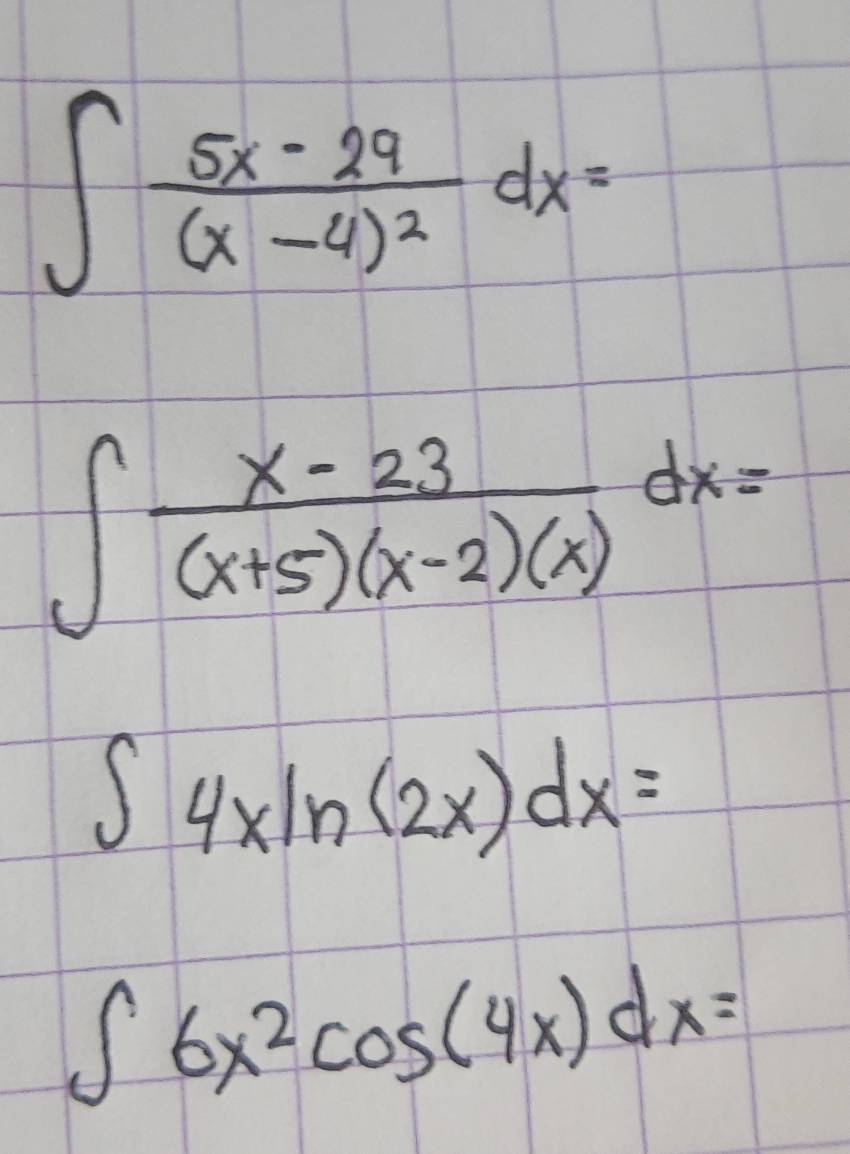 ∫ (5x - 29)/(x - 4)² dx =
∫ (x - 23)/((x+5)(x-2)(x)) dx =
∫ 4x ln(2x) dx =
∫ 6x² cos(4x) dx =